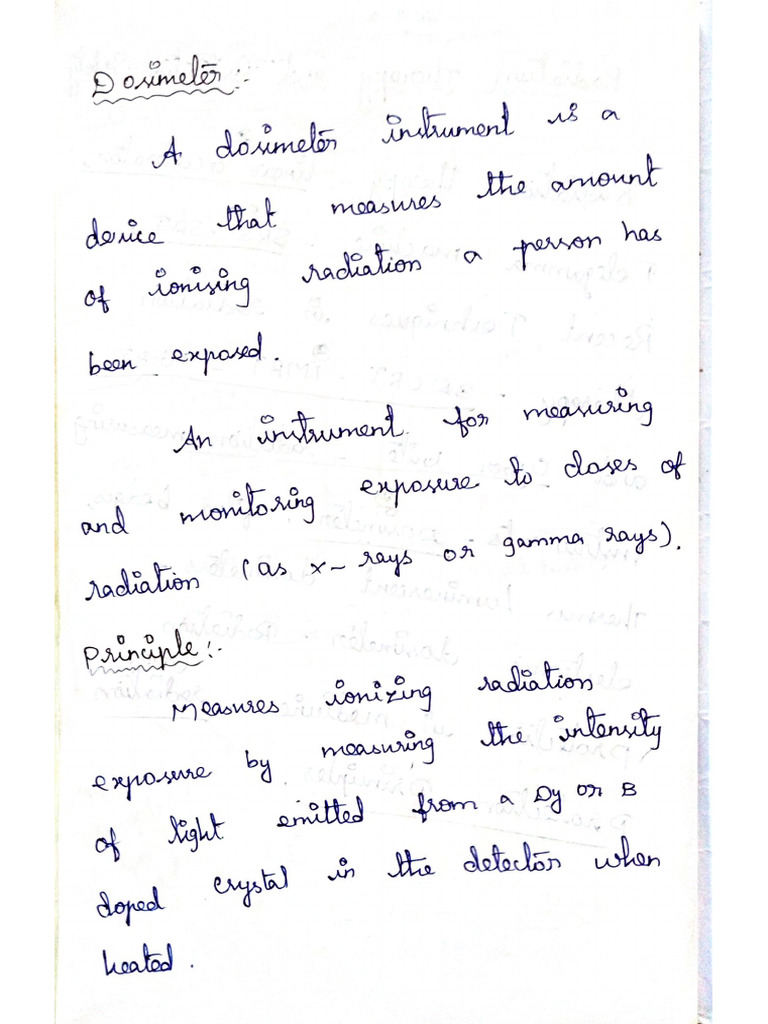 Dosimeter:-
A dosimeter instrument is a
device that measures the amount
of ionising radiation a person has
been exposed.
An instrument for measuring
and monitoring exposure to doses of
radiation (as x-rays or gamma rays).
Principle:-
Measures ionizing radiation
exposure by measuring the intensity
of light emitted from a Dy or B
doped crystal in the detector when
heated.